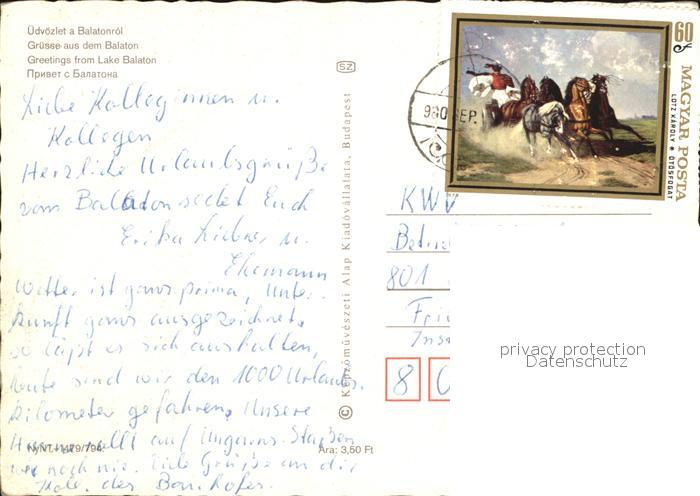 Üdvözlet a Balatonról
Grüsse aus dem Balaton
Greetings from Lake Balaton
Привет с Балатона
Liebe Kolleginnen u.
Kollegen
Herzliche Urlaubsgrüße
vom Balaton sedet Euch
Erika u.
Ehemann
Wetter ist ganz prima, Unter-
kunft ganz ausgezeichnet,
so läßt es sich aushalten,
heute sind wir den 1000 Urlaubs.
kilometer gefahren, Unsere
auf Ungarns Straßen
noch nie. Viele Grüße an die
Kole. des
NyNT-1479/794.
Ára: 3,50 Ft
SZ
© Képzőművészeti Alap Kiadóvállalata, Budapest
60f
MAGYAR POSTA
LOTZ KÁROLY * ÖTÖSFOGAT
980 EP.
KWV
801
8
privacy protection
Datenschutz